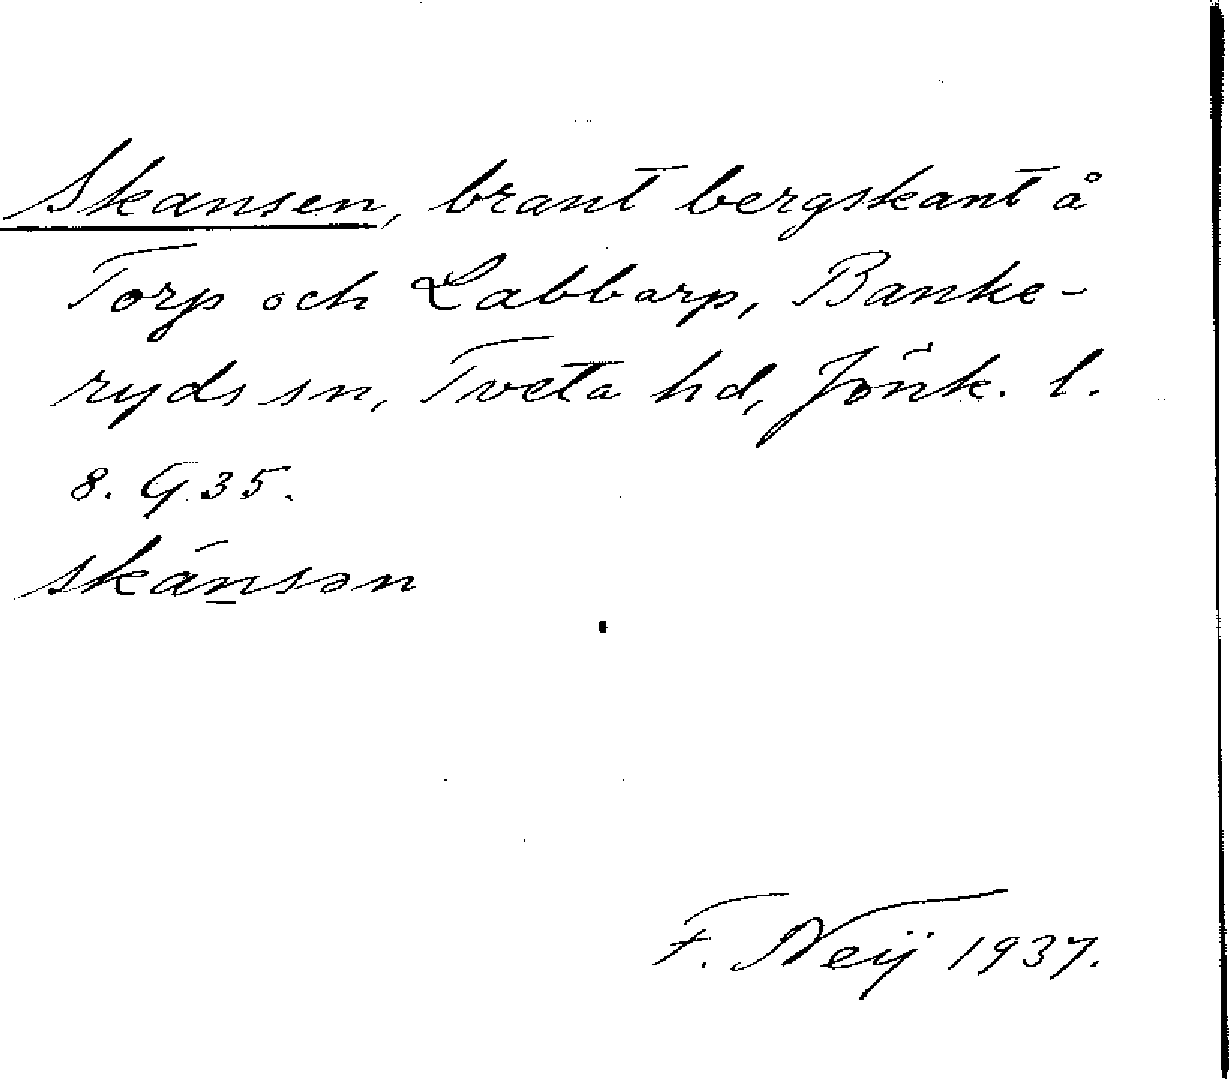 Skansen, brant bergskant å
Torp och Labbarp, Banke-
ryds sn, Tveta hd, Jönk. l.
8. G. 35.
skánsən
F. Neij 1937.